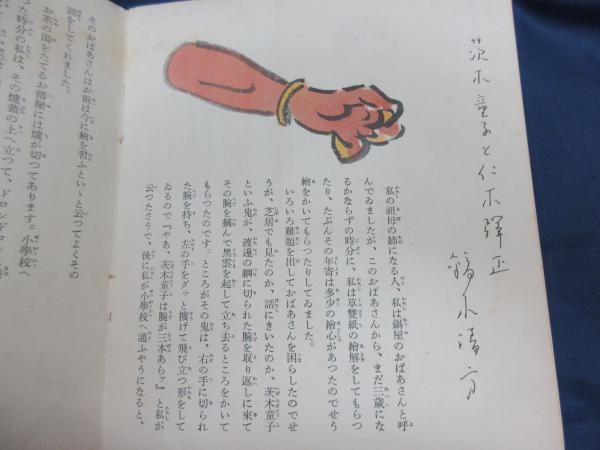 茨木童子と仁木弾正
鏑木清方
私の祖母の姉になる人、私は鍋屋のおばあさんと呼
んでゐましたが、このおばあさんから、まだ三歳にな
るかならずの時分に、私は草雙紙の繪解をしてもらつ
たり、たぶんその年寄は多少の繪心があつたのでせう
繪をかいてもらつたりしてゐました。
いろいろ難題を出しておばあさんを困らしたのでせ
うが、芝居でも見たのか、話にきいたのか、茨木童子
といふ鬼が、渡邊の綱に切られた腕を取り返しに來て
その腕を摑んで黒雲を起して立ち去るところをかいて
もらつたのです。ところがその鬼は、右の手に切られ
た腕を持ち、左の手をグッと擴げて飛び立つ形をして
ゐるので『やあ、茨木童子は腕が三本あらァ』と私が
云つたさうで、後に私が小學校へ通ふやうになると、
そのおばあさんはお前は今に繪を習ふといゝと云つてよくその
話をしてくれました。
お茶の湯をたてるお部屋には爐が切つてあります。小學校へ
つた時分の私は、その爐蓋の上へ立つて、ドロンドロン